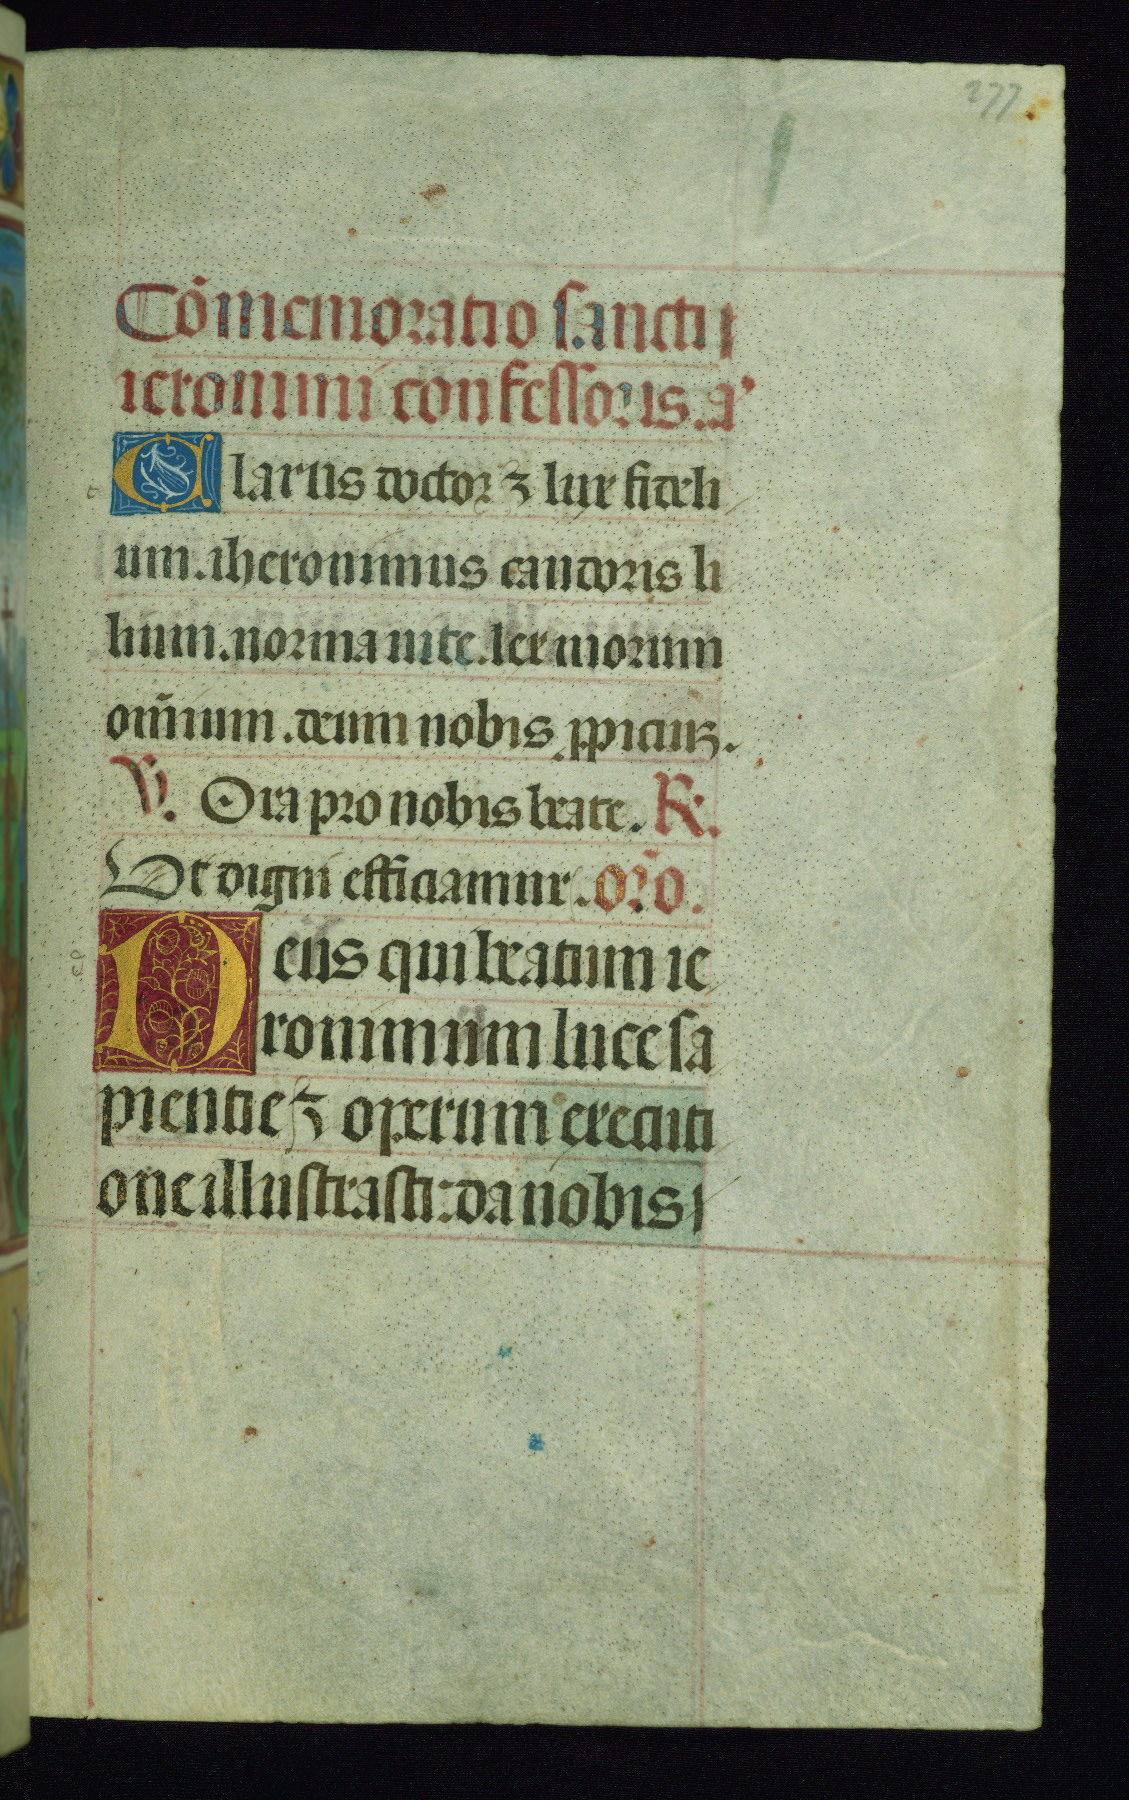 277
Cōmemoratio sancti
ieronimi confessoris. a̾
Clarus doctor ⁊ lux fideli
um. iheronimus candoris li
lium. norma uite. lex morum
om̄ium. deum nobis ꝓpiciuꝫ.
℣. Ora pro nobis beate. ℟.
Ut digni efficiamur. or̄o.
Deus qui beatum ie
ronimum luce sa
pientie ⁊ operum executi
one illustrasti: da nobis